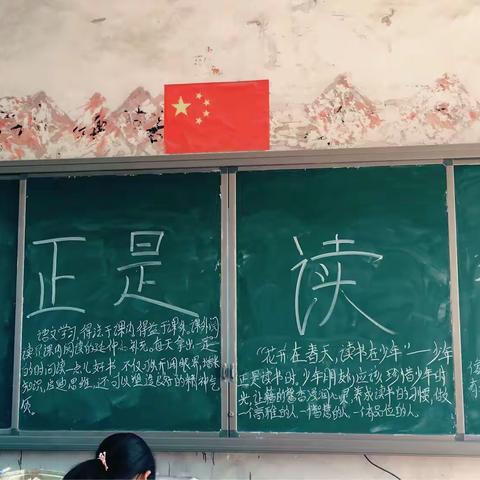 正是
语文学习,得法于课内,得益于课外。课外阅
读是课内阅读的延伸和补充。每天拿出一定
的时间读一点儿好书,不仅可以开阔眼界,增长
知识,启迪思维,还可以塑造良好的精神气
质。
读
“花开在春天,读书在少年”——少年
正是读书时,少年朋友们应该珍惜少年时
光,让书籍的馨香浸润心灵,养成读书的习惯,做
一情雅的人、一情思的人、一有品位的人。